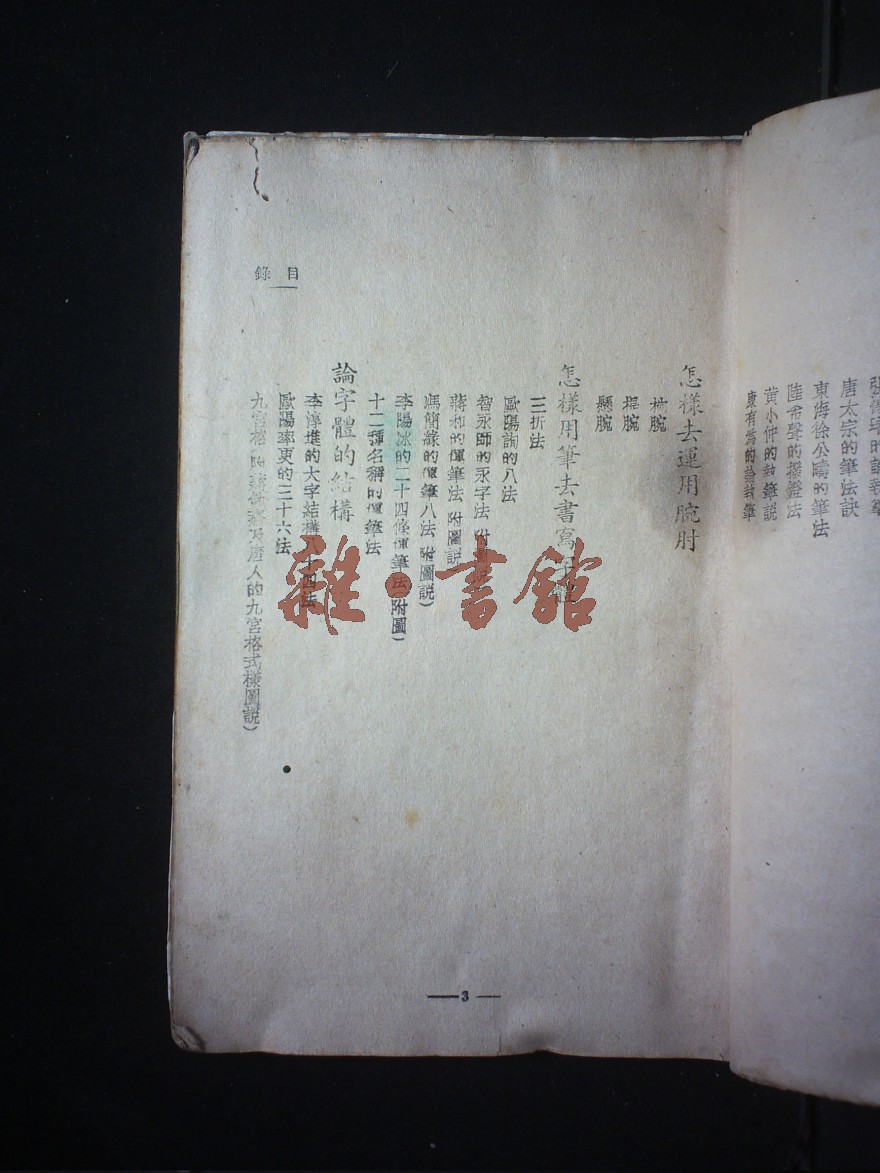 唐太宗的筆法訣
東海徐公疇的筆法
陸希聲的撥鐙法
黃小仲的執筆說
康有為的論執筆
目錄
怎樣去運用腕肘
枕腕
提腕
懸腕
怎樣用筆去書寫字體
三折法
歐陽詢的八法
智永師的永字法(附圖說)
蔣和的運筆法(附圖說)
馮簡緣的運筆八法(附圖說)
李陽冰的二十四條運筆法(附圖)
十二種名稱的運筆法
論字體的結構
李淳進的大字結構八十四法
歐陽率更的三十六法
九宮格的 唐人的九宮格式樣圖說)
— 3 —
雜·書館